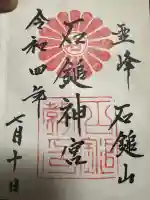 霊峰
石鎚山
石鎚神宮
令和四年
七月十日